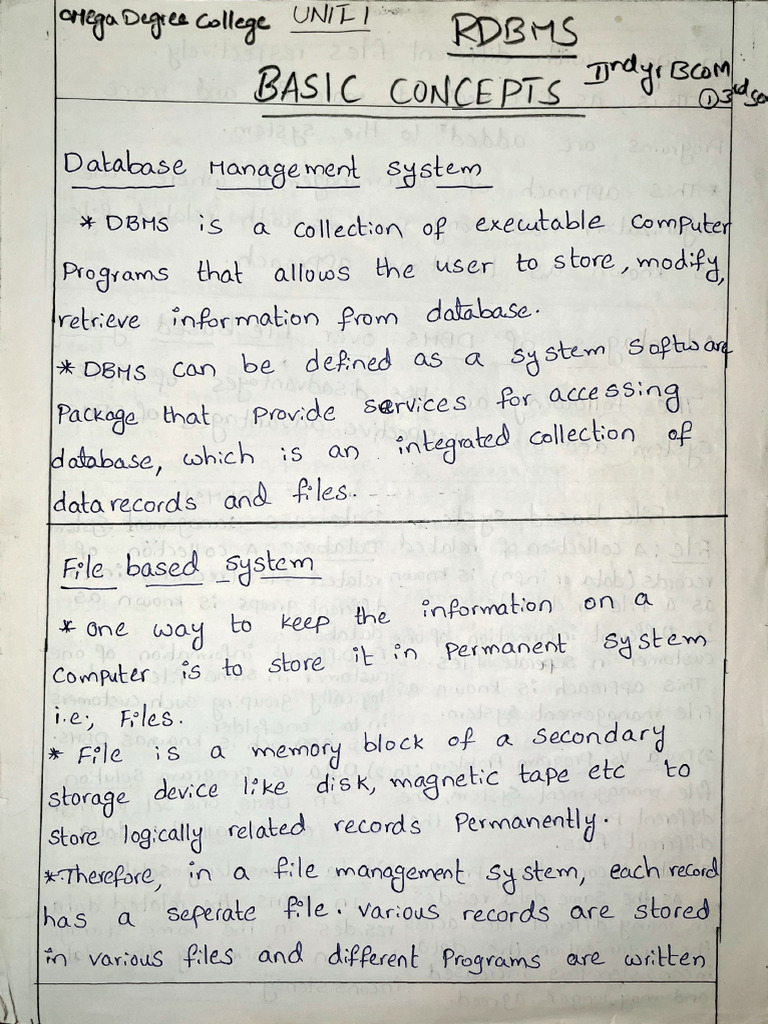 Omega Degree College UNIT 1 RDBMS
IInd yr BCOM
BASIC CONCEPTS
① 3rd Se
Database Management System
* DBMS is a collection of executable computer
Programs that allows the user to store, modify,
retrieve information from database.
* DBMS can be defined as a system software
Package that provide services for accessing
database, which is an integrated collection of
data records and files.
File based system
* one way to keep the information on a
computer is to store it in permanent system
i.e;, Files.
* File is a memory block of a secondary
storage device like disk, magnetic tape etc to
store logically related records permanently.
* Therefore, in a file management system, each record
has a seperate file. various records are stored
in various files and different programs are written